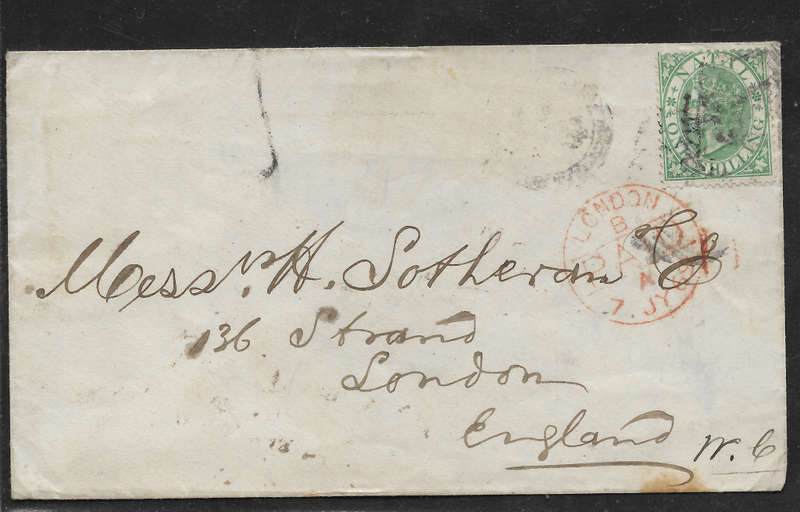 NATAL
ONE SHILLING
LONDON
7. JY 68
Messrs. H. Sotheran & Co
136 Strand
London
England
W. C